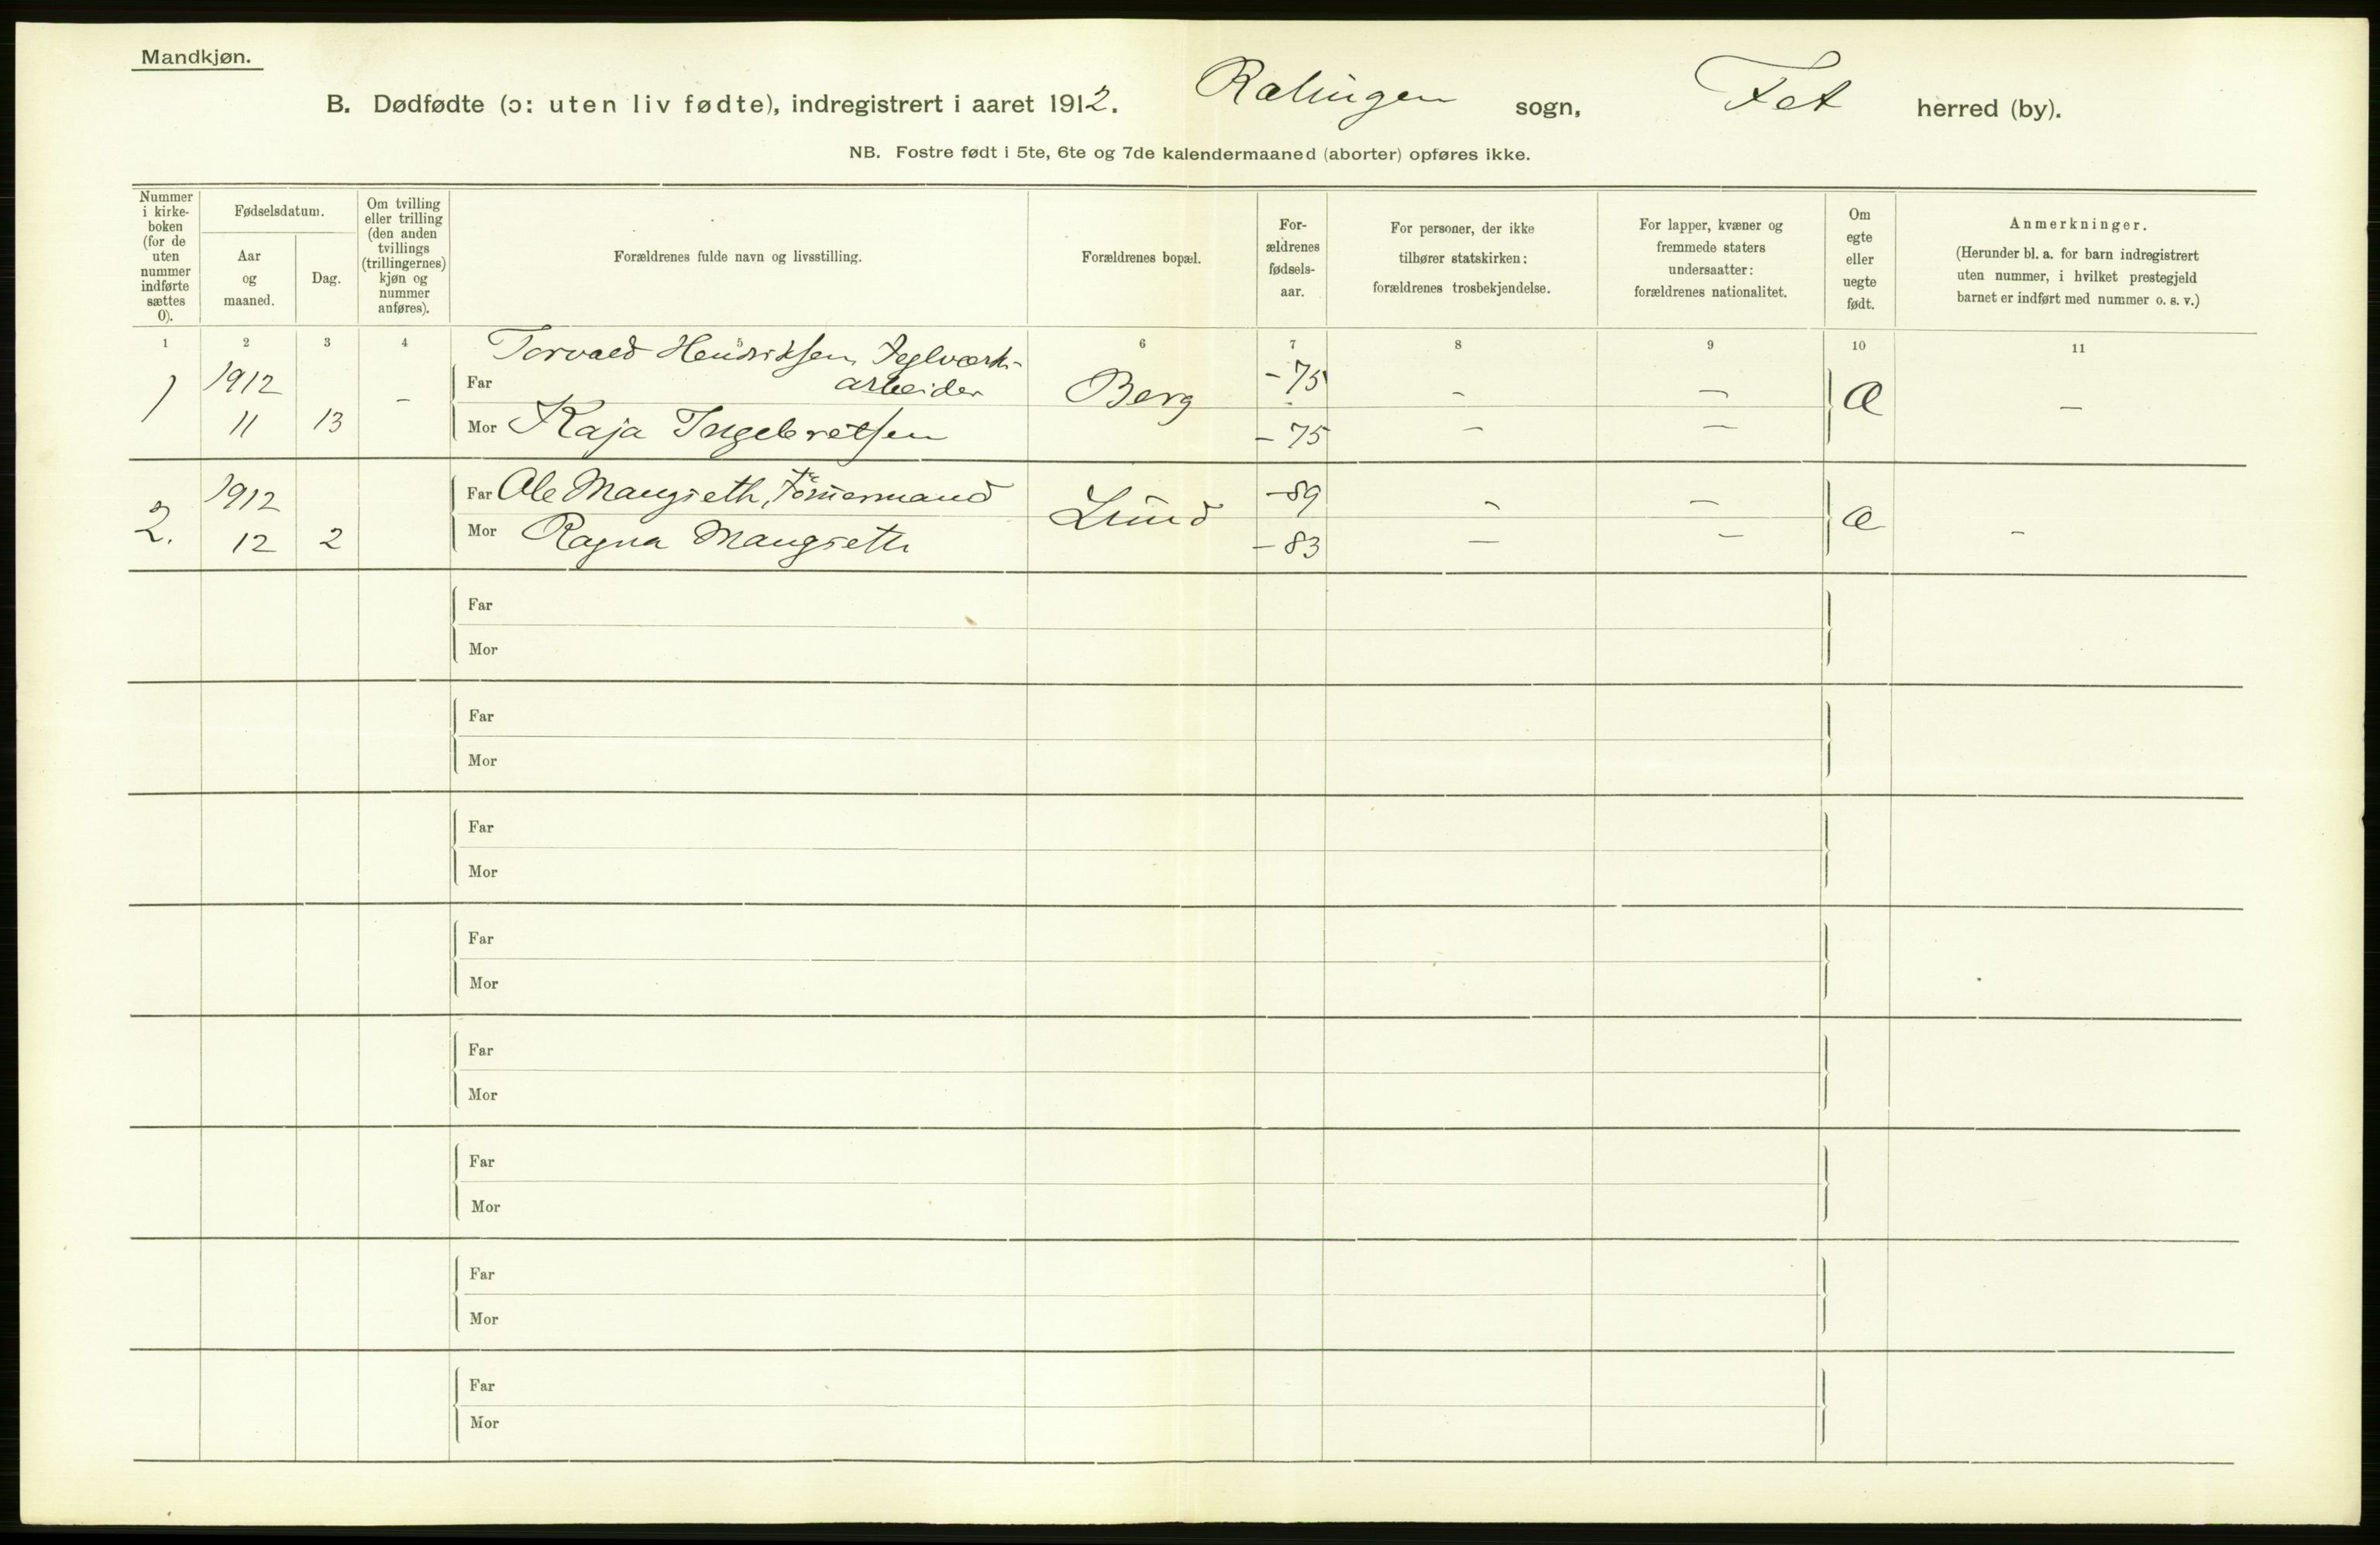 Mandkjøn.
B. Dødfødte (ɔ: uten liv fødte), indregistrert i aaret 1912. Rælingen sogn, Fet herred (by).
NB. Fostre født i 5te, 6te og 7de kalendermaaned (aborter) opføres ikke.
Nummer i kirke-boken (for de uten nummer indførte sættes 0).
Fødselsdatum.
Aar og maaned.
Dag.
Om tvilling eller trilling (den anden tvillings (trillingernes) kjøn og nummer anføres).
Forældrenes fulde navn og livsstilling.
Forældrenes bopæl.
For-ældrenes fødsels-aar.
For personer, der ikke tilhører statskirken: forældrenes trosbekjendelse.
For lapper, kvæner og fremmede staters undersaatter: forældrenes nationalitet.
Om egte eller uegte født.
Anmerkninger.
(Herunder bl. a. for barn indregistrert uten nummer, i hvilket prestegjeld barnet er indført med nummer o. s. v.)
1 2 3 4 5 6 7 8 9 10 11
Torvald Henriksen, Teglværks-
1 1912 – Far arbeider Berg – 75 – – Æ –
11 13 Mor Kaja Ingebretsen – 75 – –
2. 1912 Far Ole Mangseth, Tømmermand Lund – 89 – – Æ –
12 2 Mor Ragna Mangseth – 83 – –
Far
Mor
Far
Mor
Far
Mor
Far
Mor
Far
Mor
Far
Mor
Far
Mor
Far
Mor